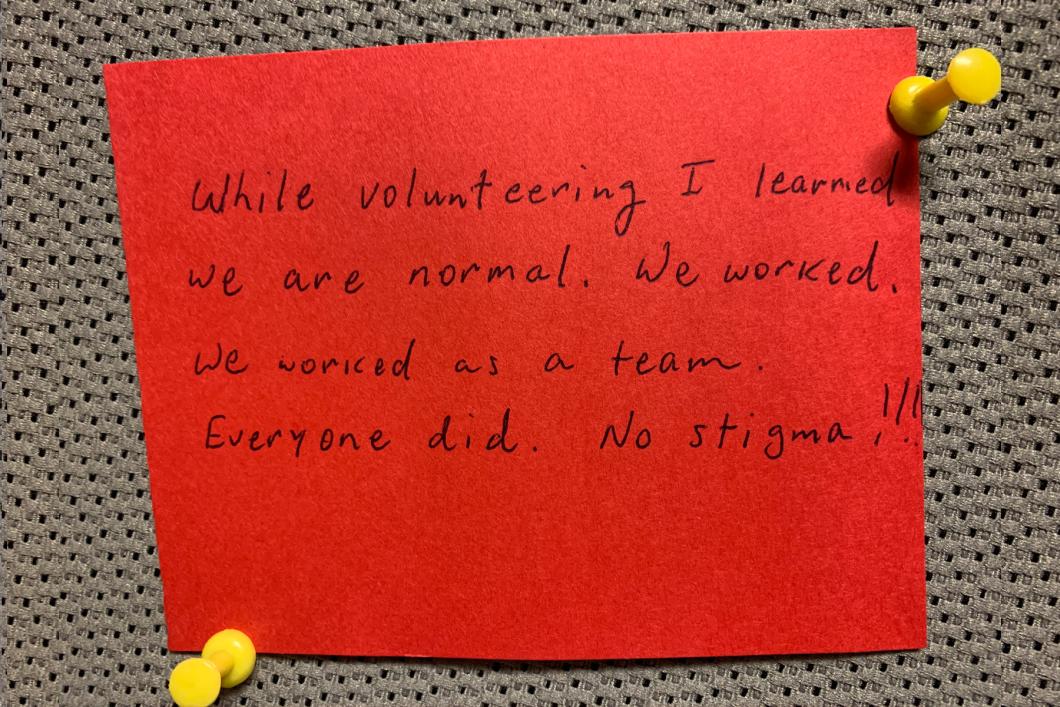 While volunteering I learned
we are normal. We worked.
We worked as a team.
Everyone did. No stigma!!!